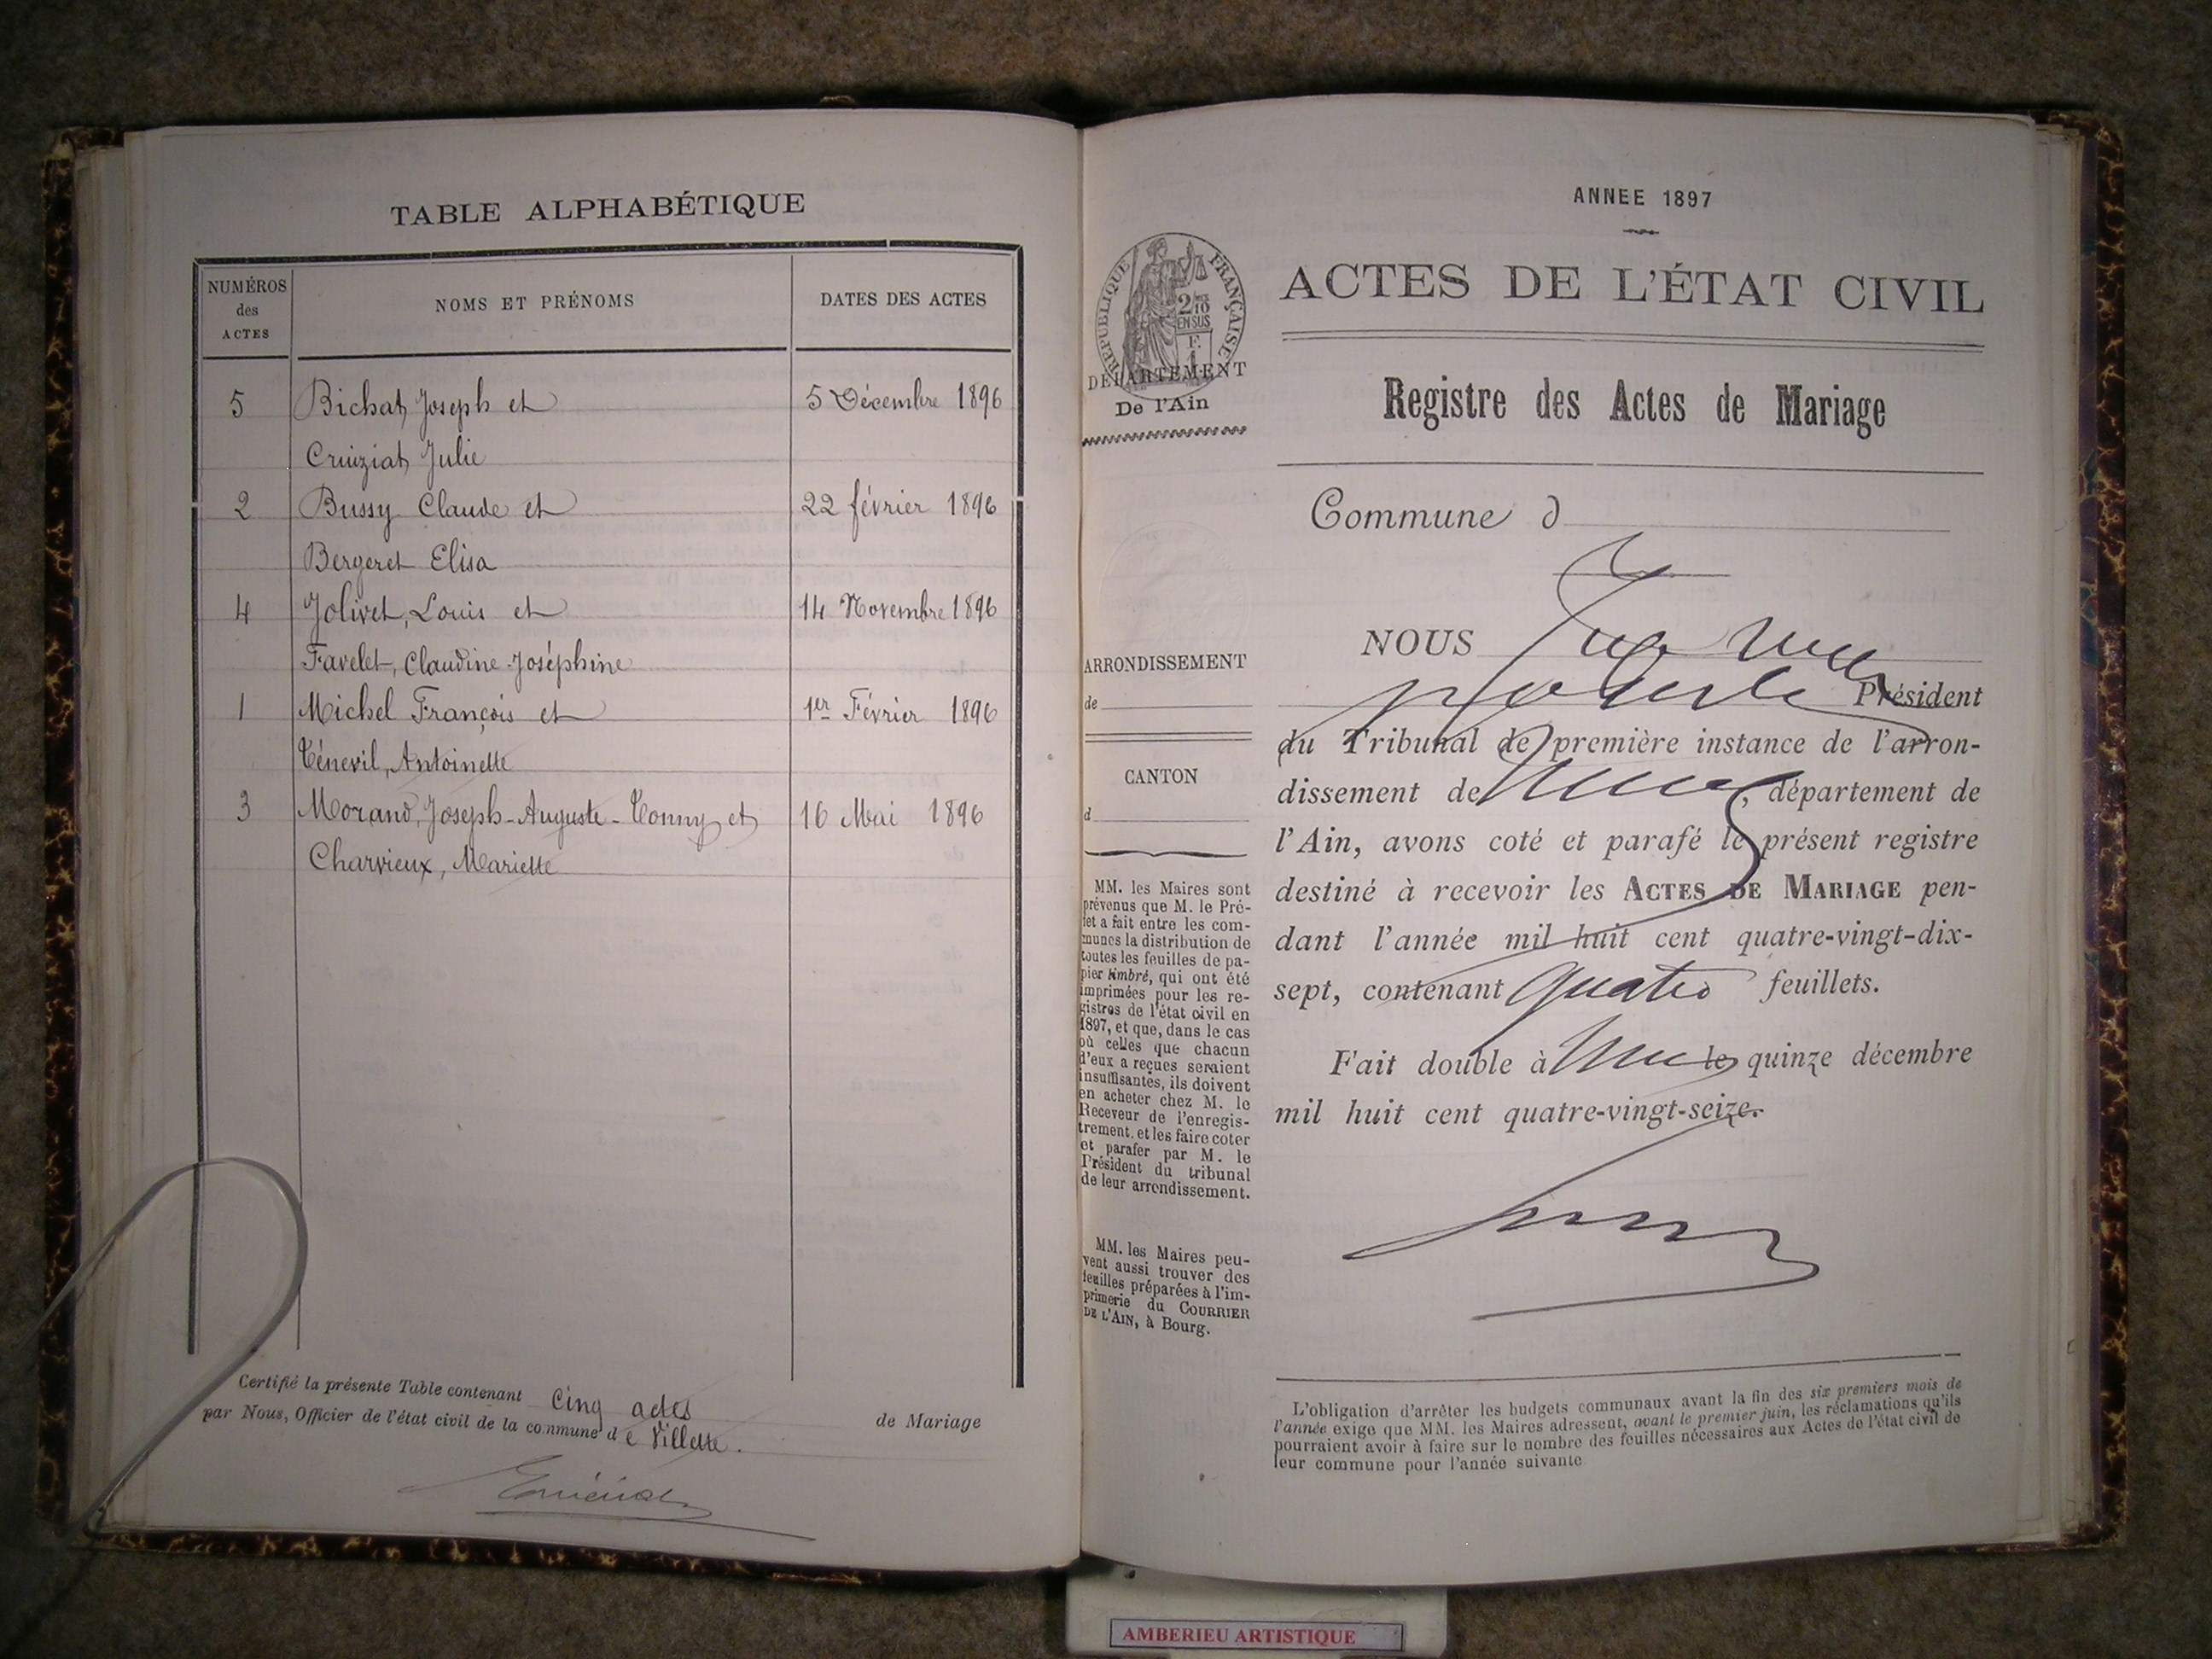 TABLE ALPHABÉTIQUE
NUMÉROS
des
ACTES
NOMS ET PRÉNOMS
DATES DES ACTES
5 Bichat, Joseph et 5 Décembre 1896
Cruiziat, Julie
2 Bussy Claude et 22 février 1896
Bergeret Elisa
4 Jolivet, Louis et 14 Novembre 1896
Favelet, Claudine-Joséphine
1 Michel François et 1er Février 1896
Antoinette
3 Morand, Joseph-Auguste-Tonny et 16 Mai 1896
Charvieux, Mariette
Certifié la présente Table contenant Cinq actes de Mariage
par Nous, Officier de l'état civil de la commune de Villette.
ANNEE 1897
ACTES DE L'ÉTAT CIVIL
RÉPUBLIQUE FRANÇAISE
2/10
EN SUS
F.
1
DÉPARTEMENT
De l'Ain
Registre des Actes de Mariage
Commune d
ARRONDISSEMENT
de
CANTON
d
MM. les Maires sont
prévenus que M. le Pré-
fet a fait entre les com-
munes la distribution de
toutes les feuilles de pa-
pier timbré, qui ont été
imprimées pour les re-
gistres de l'état civil en
1897, et que, dans le cas
où celles que chacun
d'eux a reçues seraient
insuffisantes, ils doivent
en acheter chez M. le
Receveur de l'enregis-
trement, et les faire coter
et parafer par M. le
Président du tribunal
de leur arrondissement.
MM. les Maires peu-
vent aussi trouver des
feuilles préparées à l'im-
primerie du COURRIER
DE L'AIN, à Bourg.
NOUS
Président
du Tribunal de première instance de l'arron-
dissement de , département de
l'Ain, avons coté et parafé le présent registre
destiné à recevoir les ACTES DE MARIAGE pen-
dant l'année mil huit cent quatre-vingt-dix-
sept, contenant quatre feuillets.
Fait double à le quinze décembre
mil huit cent quatre-vingt-seize.
L'obligation d'arrêter les budgets communaux avant la fin des six premiers mois de
l'année exige que MM. les Maires adressent, avant le premier juin, les réclamations qu'ils
pourraient avoir à faire sur le nombre des feuilles nécessaires aux Actes de l'état civil de
leur commune pour l'année suivante
AMBERIEU ARTISTIQUE